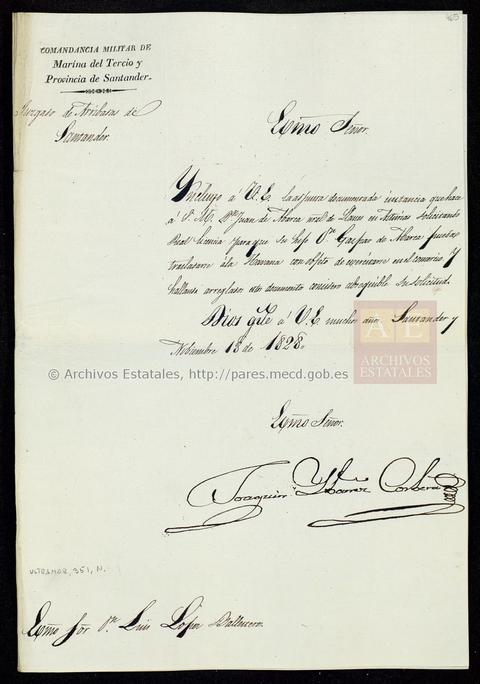 465
COMANDANCIA MILITAR DE
Marina del Tercio y
Provincia de Santander.
Juzgado de Arribadas de
Santander.
Exmo Señor.
Yncluyo á V. E. la adjunta documentada instancia que hace
á S. M. Dn Juan de Abarca vral de Llanes en Asturias solicitando
Real licencia para que su hijo Dn Gaspar de Abarca pueda
trasladarse á la Havana con objeto de exercitarse en el comercio y
hallanse arreglados este documento considero asequible su solicitud.
Dios gde á V. E. muchos años. Santander y
Nobiembre 18 de 1828.
AE
ARCHIVOS
ESTATALES
© Archivos Estatales, http://pares.mecd.gob.es
Exmo Señor.
Joaquin Ybañez Corbera
ULTRAMAR, 351, N.
Exmo Sör Dn Luis López Ballesteros